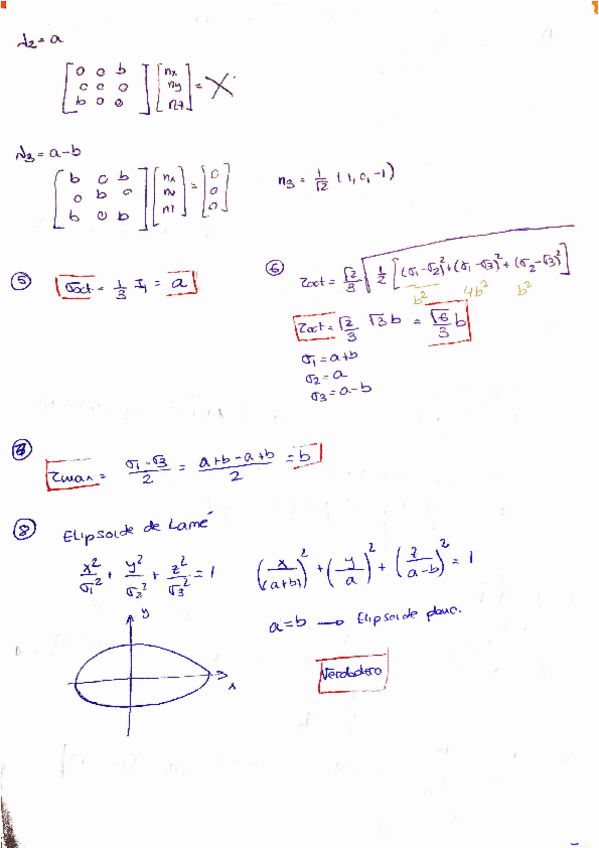 λ2 = a
[0 0 b; 0 0 0; b 0 0] [nx; ny; nz] = X
λ3 = a-b
[b 0 b; 0 b 0; b 0 b] [nx; ny; nz] = [0; 0; 0]    n3 = 1/√2 (1, 0, -1)
⑤ σoct = 1/3 I1 = a
⑥ τoct = √2/3 √(1/2 [(σ1-σ2)² + (σ1-σ3)² + (σ2-σ3)²])
b² 4b² b²
τoct = √2/3 √3 b = √6/3 b
σ1 = a+b
σ2 = a
σ3 = a-b
τmax = (σ1-σ3)/2 = (a+b-a+b)/2 = b
⑧ Elipsoide de Lamé
x²/σ1² + y²/σ2² + z²/σ3² = 1    (x/(a+b))² + (y/a)² + (z/(a-b))² = 1
a = b → Elipsoide plano.
y
x
Verdadero